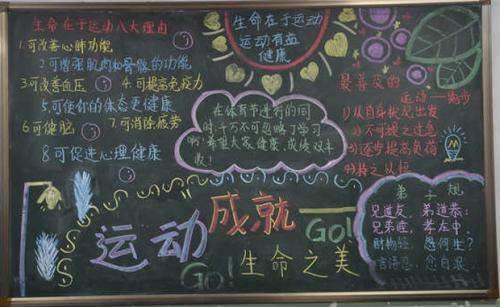 生命在于运动八大理由
1.可改善心肺功能
2.可增强肌肉和骨骼的功能
3可改善血压 4.可提高免疫力
5.可使你的体态更健康
6可健脑 7.可消除疲劳
8可促进心理健康
生命在于运动
运动有益
健康
在体育节进行的同
时千万不可忽略了学习
啊!希望大家健康、成绩双丰
收!
最普及的
运动—跑步
1)从自身状况出发
2)不可操之过急
3)逐步提高负荷
4)持之以恒
运动成就—
Go!
Go!
生命之美
弟子规
兄道友，弟道恭：
兄弟睦，孝在中.
财物轻，怨何生？
言语忍，忿自泯.